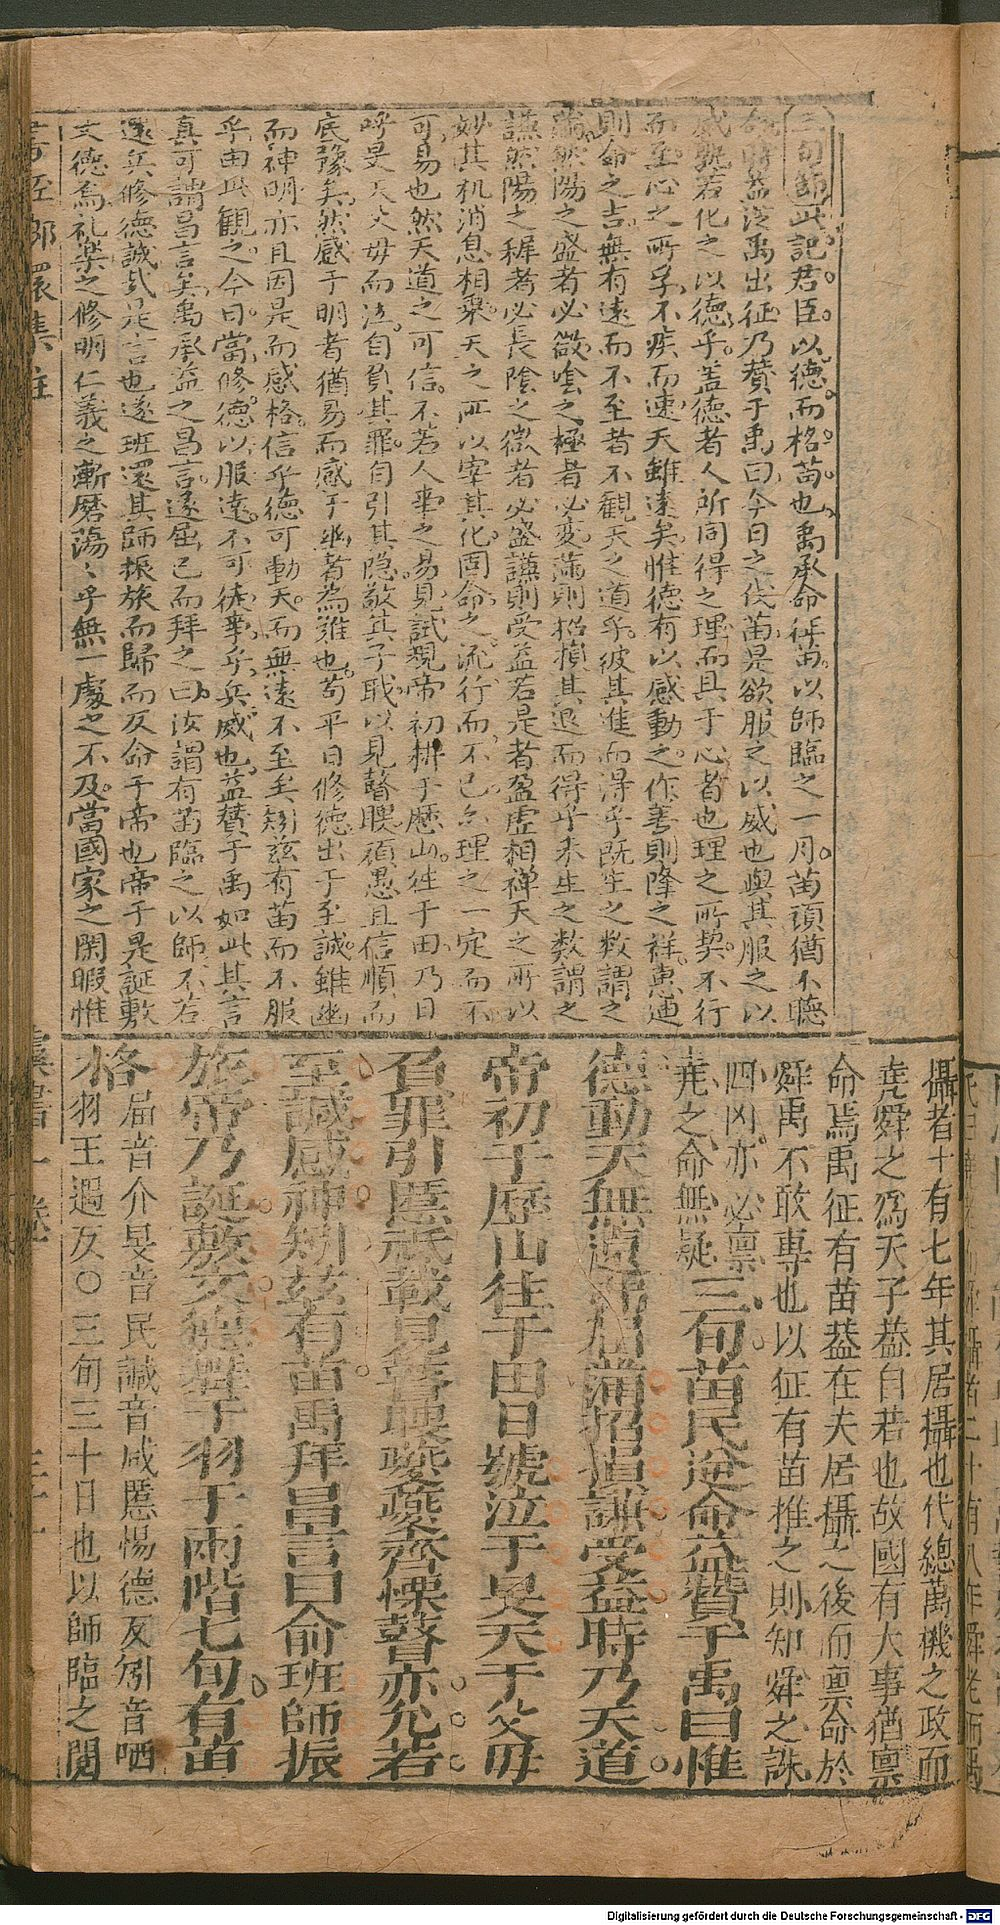 三旬節此記君臣以德而格苗也禹承命徂苗以師臨之一月苗頑猶不聽
命時益從禹出征乃贊于禹曰今日之伐苗是欲服之以威也與其服之以
威孰若化之以德乎盖德者人所同得之理而具于心者也理之所契不行
而至心之所孚不疾而速天雖遠矣惟德有以感動之作善則降之祥惠迪
則命之吉無有遠而不至者不觀天之道乎彼其進而得乎既生之数謂之
滿然陽之盛者必斂陰之極者必変滿則招損其退而得乎未生之数謂之
謙然陽之穉者必長陰之微者必盛謙則受益若是者盈虛相禅天之所以
妙其机消息相乘天之所以宰其化固命之流行而不已亦理之一定而不
可易也然天道之可信不若人事之易見試觀帝初耕于歷山往于田乃日
呼旻天父毋而泣自負其罪自引其隐敬其子職以見瞽瞍頑愚且信順而
底豫矣然感于明者猶易而感于幽者為难也苟平日修德出于至誠雖幽
而神明亦且因是而感格信乎德可動天而無遠不至矣矧兹有苗而不服
乎由此觀之今日當修德以服遠不可徒事乎兵威也益贊于禹如此其言
真可謂昌言矣禹承益之昌言遂屈己而拜之曰汝謂有苗臨之以師不若
還兵修德誠哉是言也遂班還其師振旅而歸而反命于帝也帝于是誕敷
文德為礼楽之修明仁義之漸磨蕩々乎無一處之不及當國家之閑暇惟
攝者十有七年其居攝也代總萬機之政而
堯舜之為天子葢自若也故國有大事猶禀
命焉禹征有苗葢在夫居攝之後而禀命於
舜禹不敢專也以征有苗推之則知舜之誅
四凶亦必禀
堯之命無疑 三旬苗民逆命益贊于禹曰惟
德動天無遠弗屆滿招損謙受益時乃天道
帝初于歷山往于田日號泣于旻天于父毋
負罪引慝祗載見瞽瞍夔夔齋慄瞽亦允若
至諴感神矧兹有苗禹拜昌言曰俞班師振
旅帝乃誕敷文德舞干羽于兩階七旬有苗
格 届音介旻音民諴音咸慝惕德反矧音哂
羽王遇反○三旬三十日也以師臨之閱
虞書一卷
Digitalisierung gefördert durch die Deutsche Forschungsgemeinschaft - DFG